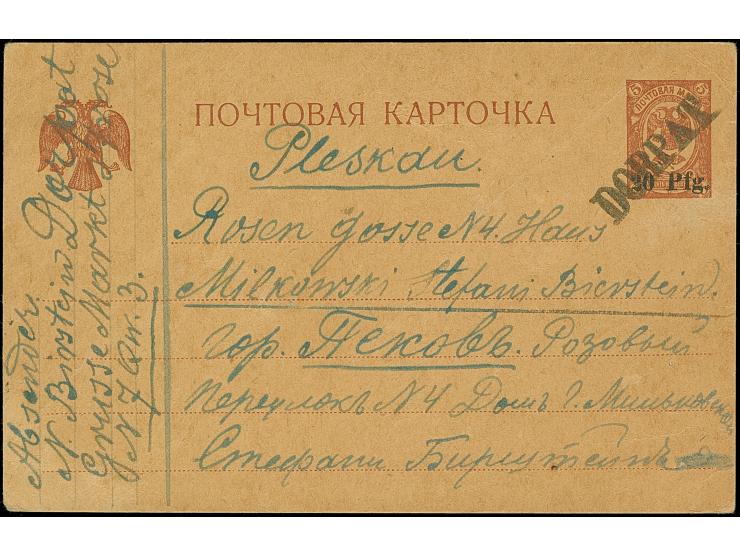 ПОЧТОВАЯ КАРТОЧКА
5 5
ПОЧТОВАЯ
20 Pfg.
DORPAT
Pleskau.
Rosen Gosse N 4. Haus
Milkowski Stefani Bierstein.
гор. Псковъ. Розовый
Переулокъ N 4 Домъ Г. Мильковской
Стефани Бирштейнъ
Absender.
N. Birstein Dorpat
Grusse Markt
N 7 Qu. 3.